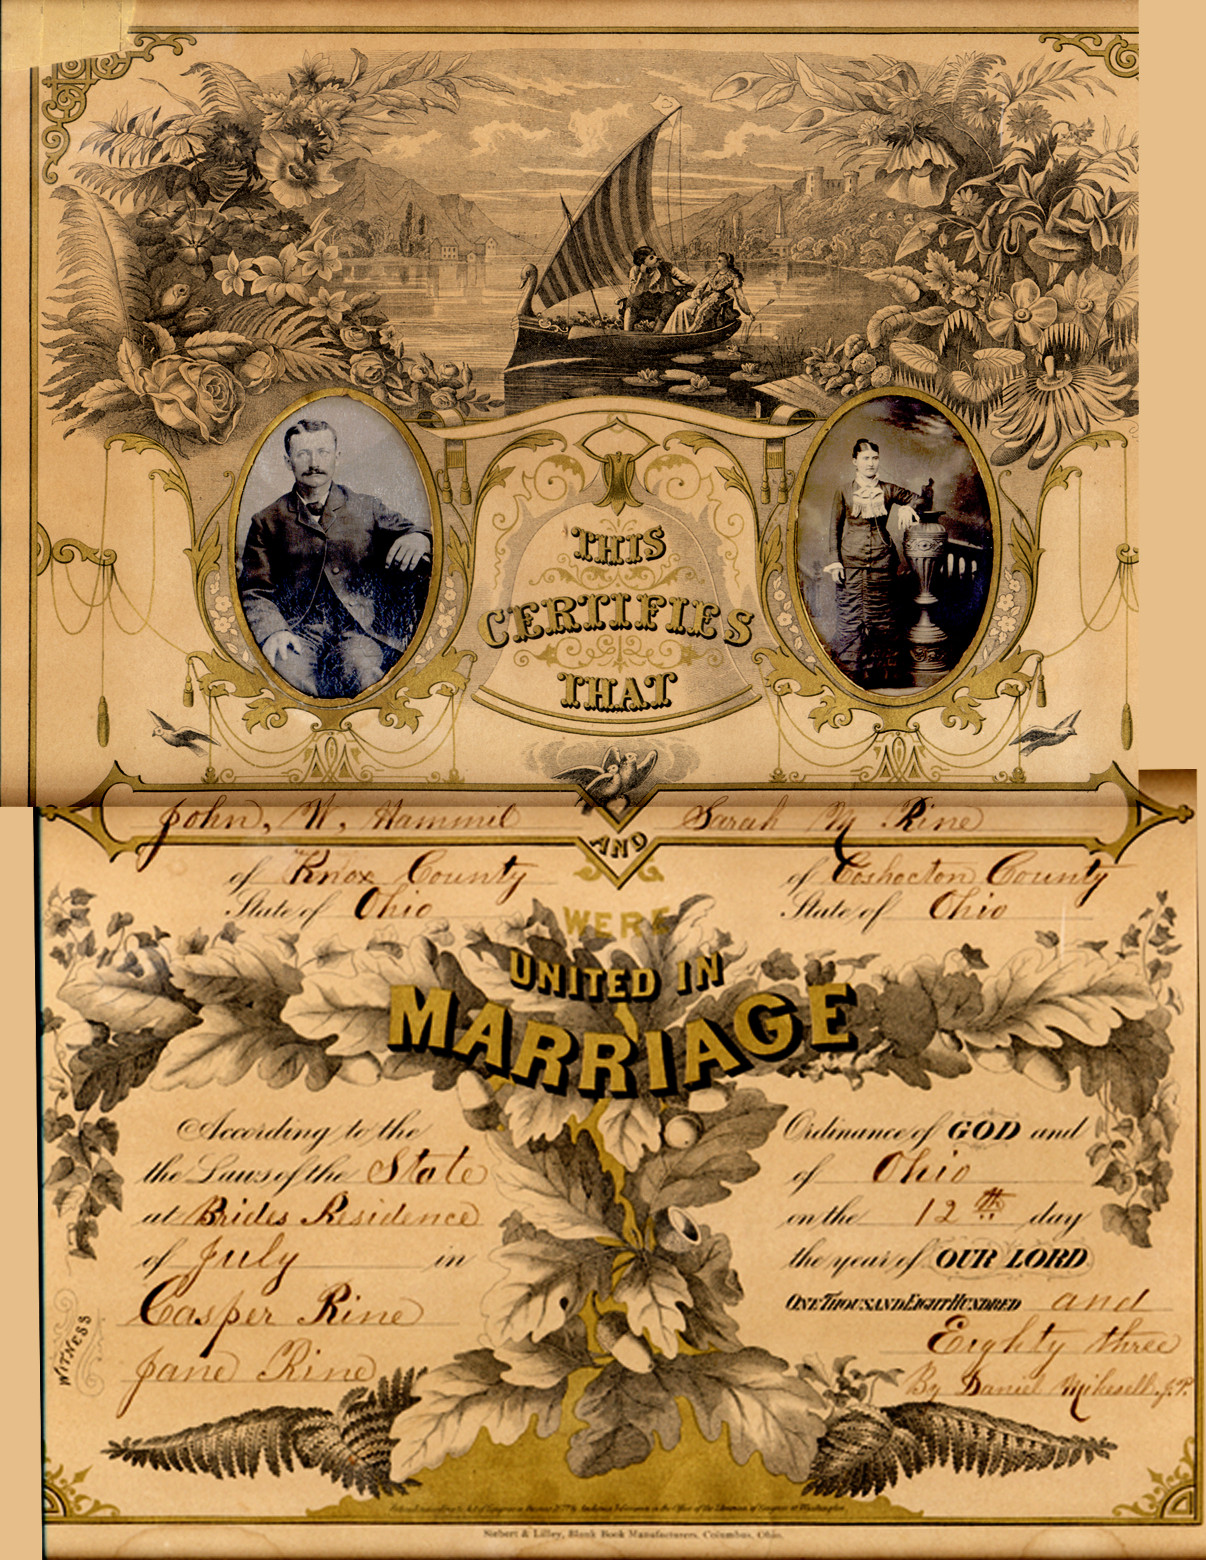 THIS
CERTIFIES
THAT
John, W, Hammil AND Sarah M Rine
of Knox County of Coshocton County
State of Ohio State of Ohio
WERE
UNITED IN
MARRIAGE
According to the Ordinance of GOD and
the Laws of the State of Ohio
at Brides Residence on the 12th day
of July in the year of OUR LORD
Casper Rine ONE THOUSAND EIGHT HUNDRED and
WITNESS
Eighty three
Jane Rine By Daniel Mikesell. J.P.
Entered according to Act of Congress in the Office of the Librarian of Congress at Washington.
Siebert & Lilley, Blank Book Manufacturers, Columbus, Ohio.